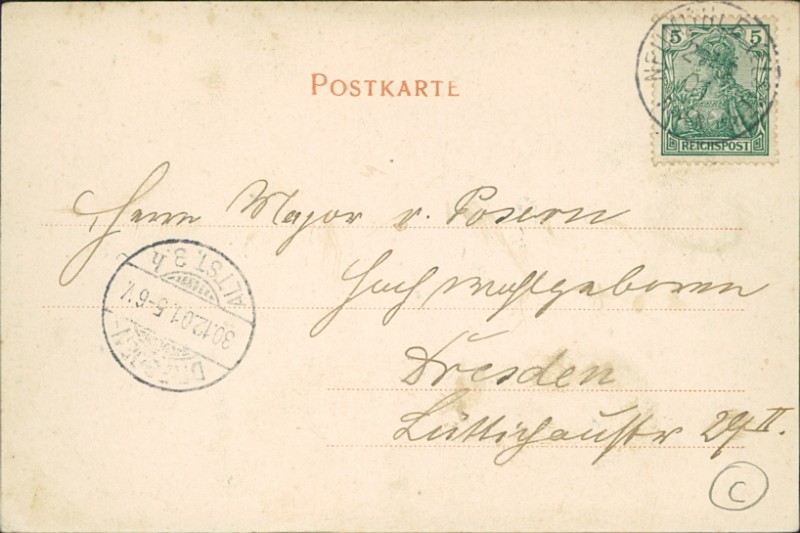 POSTKARTE
5 5
REICHSPOST
Herrn Major v. Posern
Hochwohlgeboren
Dresden
Lüttichaustr 29 II.
DRESDEN-
30.12.01.5-6V.
ALTST. 3.h
C